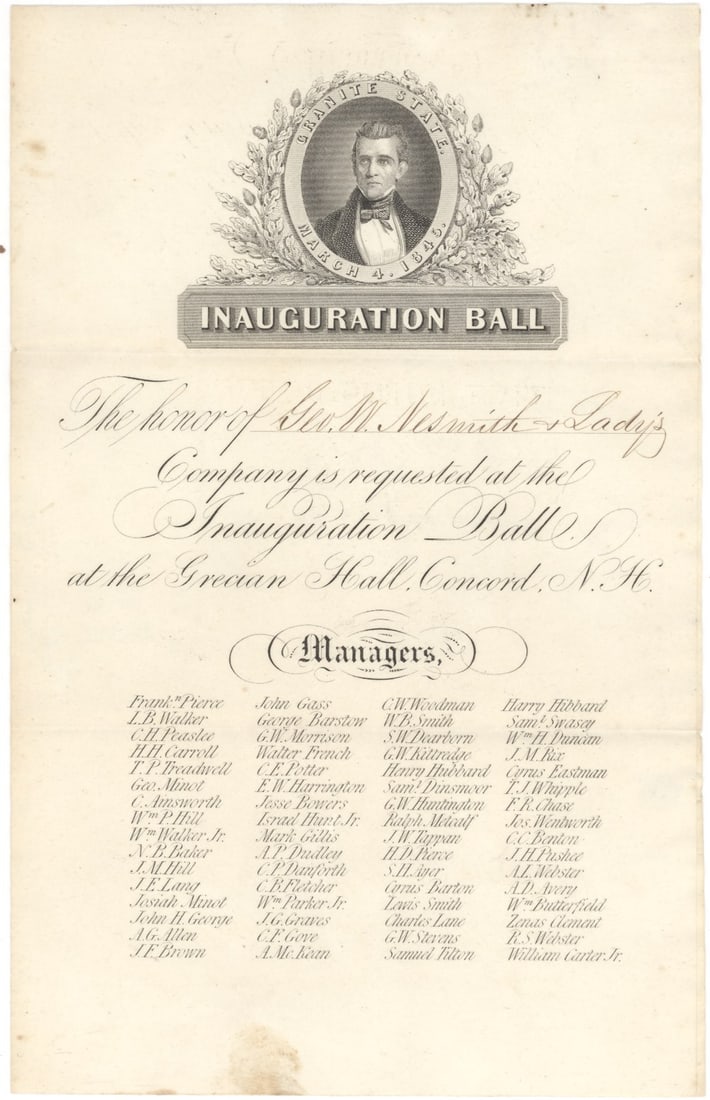 GRANITE STATE.
MARCH 4. 1845.
INAUGURATION BALL
The honor of Geo. W. Nesmith & Lady's
Company is requested at the
Inauguration Ball.
at the Grecian Hall, Concord, N.H.
Managers,
Frankn. Pierce
L.B. Walker
C.H. Peaslee
H.H. Carroll
T.P. Treadwell
Geo. Minot
C. Ainsworth
Wm. P. Hill
Wm. Walker Jr.
N.B. Baker
J.M. Hill
J.E. Lang
Josiah Minot
John H. George
A.G. Allen
J.F. Brown
John Gass
George Barstow
G.W. Morrison
Walter French
C.E. Potter
E.W. Harrington
Jesse Bowers
Israel Hunt Jr.
Mark Gillis
A.P. Dudley
C.P. Danforth
C.B. Fletcher
Wm. Parker Jr.
J.G. Graves
C.F. Gove
A. Mc. Kean
C.W. Woodman
W.B. Smith
S.W. Dearborn
G.W. Kittredge
Henry Hubbard
Saml. Dinsmoor
G.W. Huntington
Ralph Metcalf
J.W. Tappan
H.D. Pierce
S.H. Ayer
Cyrus Barton
Lewis Smith
Charles Lane
G.W. Stevens
Samuel Tilton
Harry Hibbard
Saml. Swasey
Wm. H. Duncan
J.M. Rix
Cyrus Eastman
T.J. Whipple
F.R. Chase
Jos. Wentworth
C.C. Benton
J.H. Pushee
A.L. Webster
A.D. Avery
Wm. Butterfield
Zenas Clement
R.S. Webster
William Carter Jr.